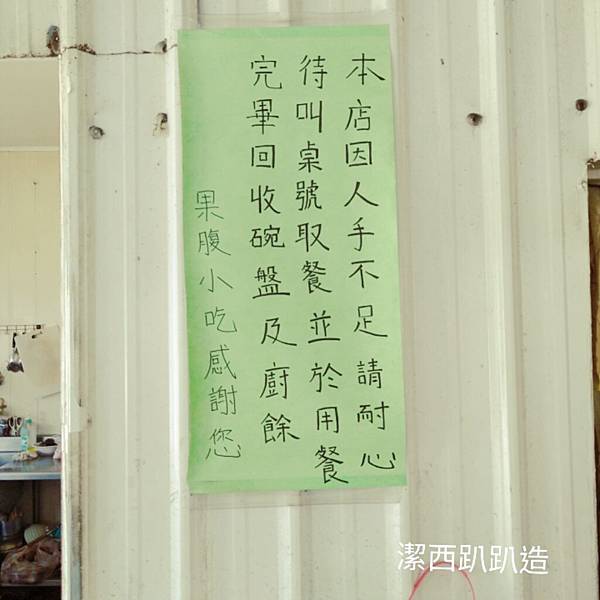 本店因人手不足請耐心
待叫桌號取餐並於用餐
完畢回收碗盤及廚餘
果腹小吃感謝您
潔西趴趴造